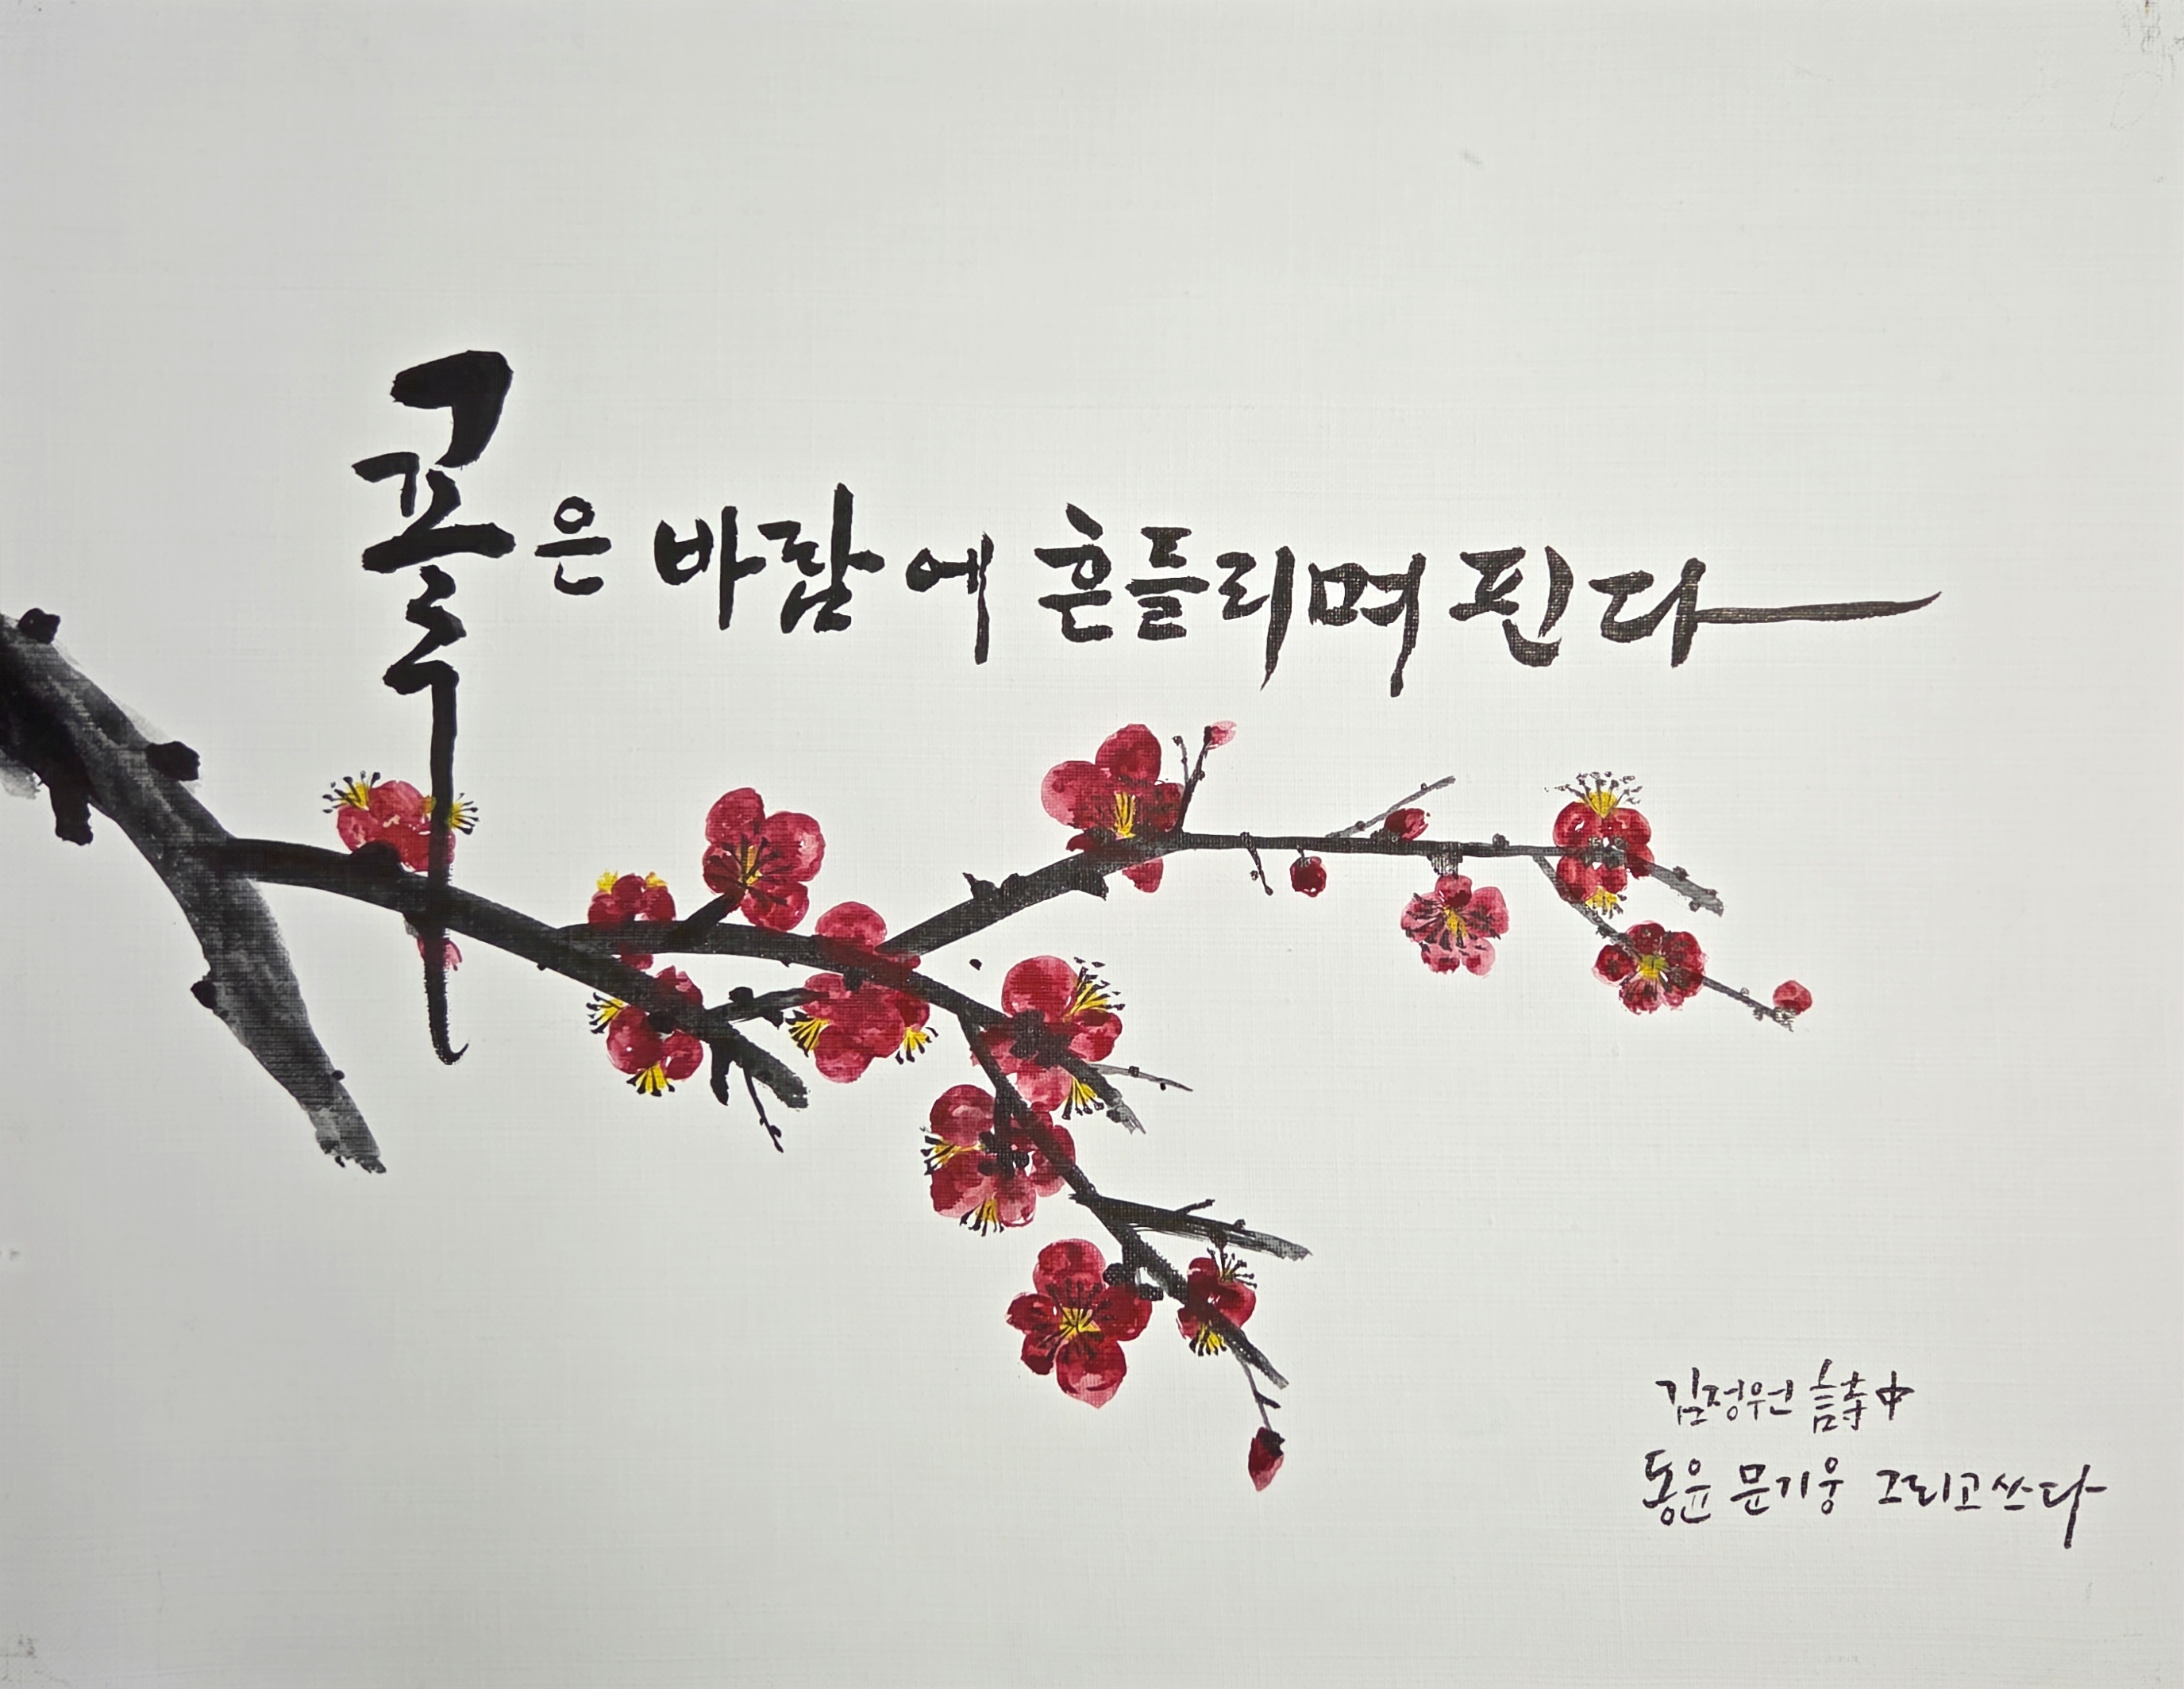 꽃은 바람에 흔들리며 핀다
김정원 詩中
동윤 문기웅 그리고쓰다